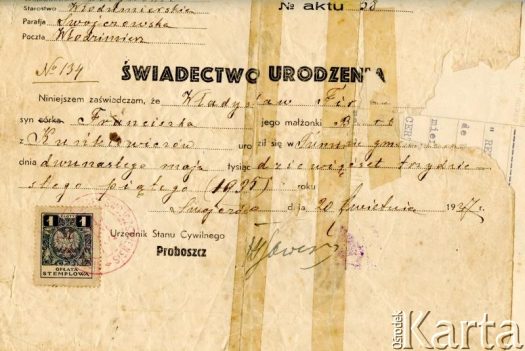 Starostwo Włodzimierskie
Parafja Swojczowska
Poczta Włodzimierz
№ aktu 58
№ 134
ŚWIADECTWO URODZENIA
Niniejszem zaświadczam, że Władysław
syn córka Franciszka jego małżonki
z uro ził się w
dnia dwunastego maja tysiąc dziewięćset trzydzie
stego piątego (1935) roku
dnia 20 kwietnia 1937 r.
Urzędnik Stanu Cywilnego
Proboszcz
1 1
OPŁATA
STEMPLOWA
Ośrodek
Karta